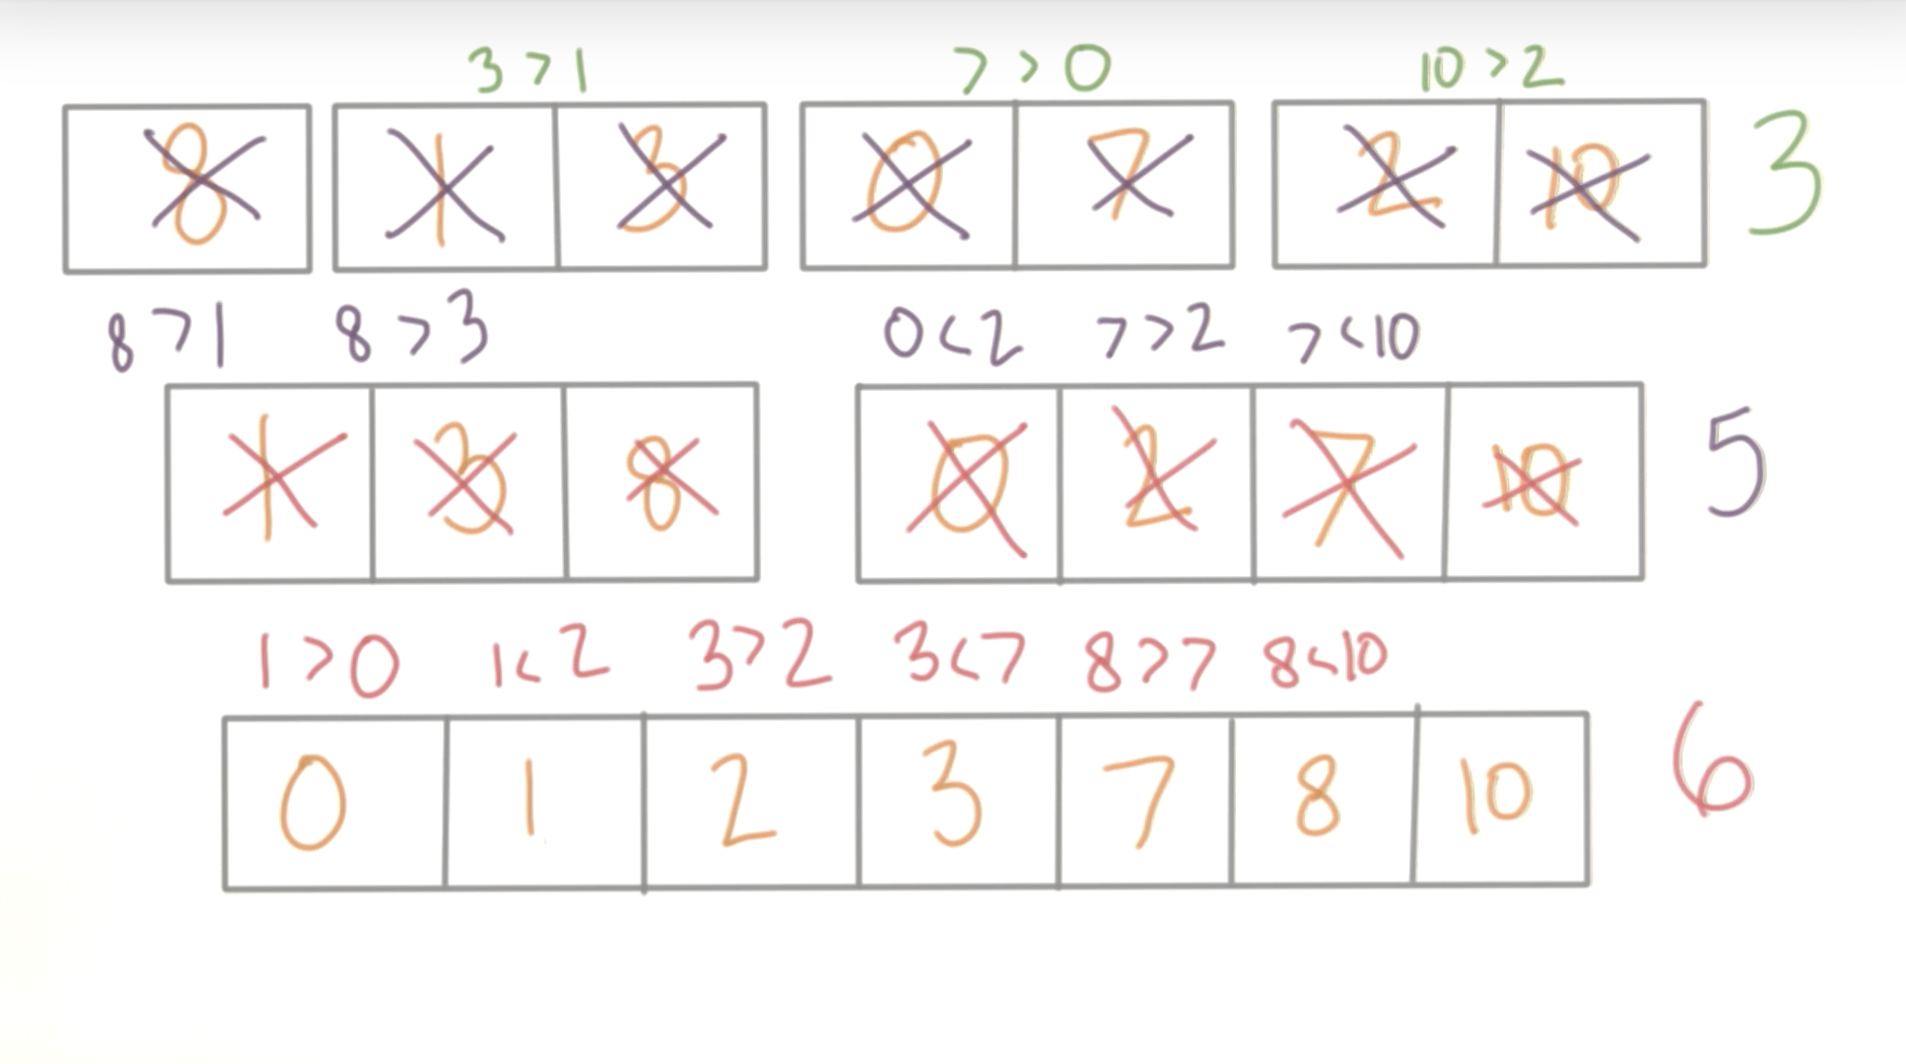 3 > 1 7 > 0 10 > 2
8 1 3 0 7 2 10 3
8 > 1 8 > 3 0 < 2 7 > 2 7 < 10
1 3 8 0 2 7 10 5
1 > 0 1 < 2 3 > 2 3 < 7 8 > 7 8 < 10
0 1 2 3 7 8 10 6